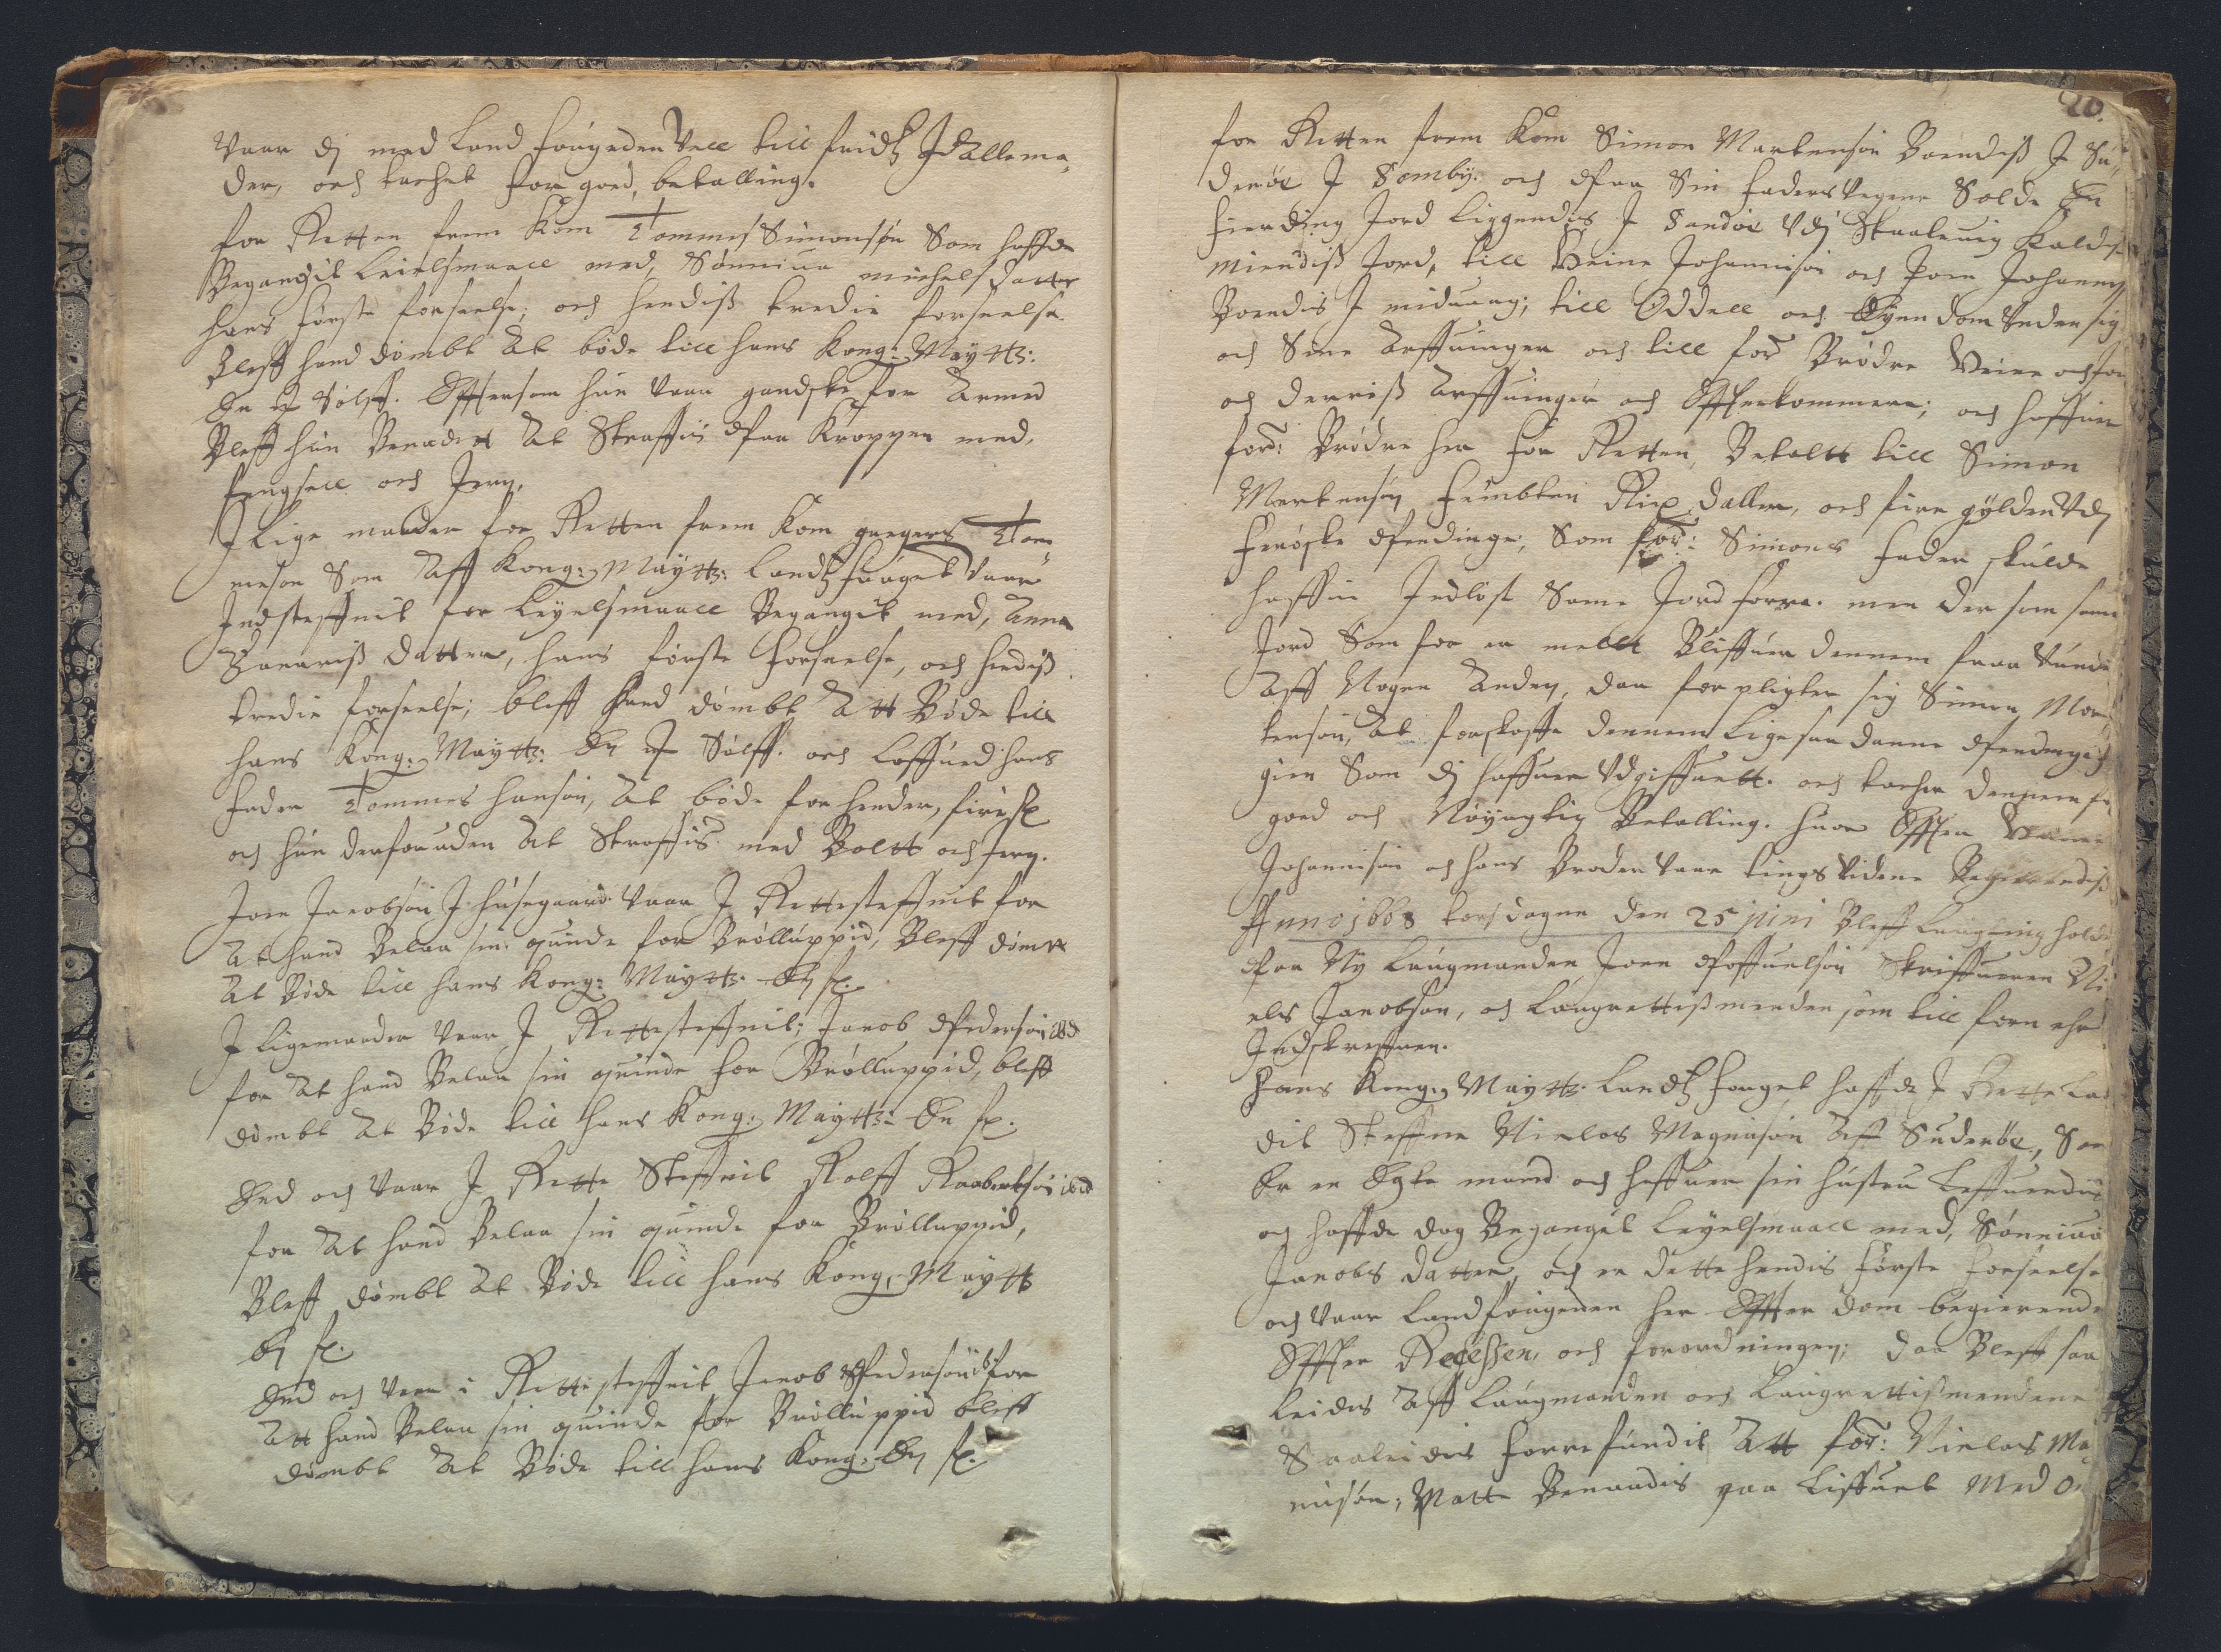 Vaar dj med Land fougeden Vell till fridtz J Allema¬
der, och tachet for goed, betalling.
for Retten frem kom Tommes Simonsøn Som haffde
Begangit Leielsmaall med, Sønniua michelsdatter
hans første forseelse, och hendis tredie forseelse
Bleff hand dømbt At bøde till hans Kong: Maytt:
En Sølff. Effter som hun Vaar gandske for Armed
Bleff hun At Straffis paa Kroppen med,
fengsell och Jern.
J Lige maader for Retten frem kom gregers Tom¬
mesøn Som Aff Kong: Maytt: Landtz fougit Vaar
Jndsteffnit for Leyelsmaall Begangit med, Anna
datter, hans første forseelse, och hendis
tredie forseelse; bleff hand dømbt Att Bøde till
hans Kong: Maytt: En Sølff. och Loffued hans
fader Tommes hansøn, At bøde for hender, fire
och hun derforuden At Straffis med Boltt och Jern.
Joen Jacobsøn J husegaard Vaar J Rettesteffnit for
At hand Belaa sin quinde for Brølluppid, Bleff dømt
At Bøde till hans Kong: Maytt:
J Ligemaader Vaar J Rettesteffnit; Jacob Pedersøn ibid
for At hand Belaa sin quinde for Brølluppid, bleff
dømbt At Bøde till hans Kong: Maytt: En
End och Vaar J Rette Steffnit Rolff Raabertsøn ibid
for At hand Belaa sin quinde for Brølluppid,
Bleff dømbt At Bøde till hans Kong: Maytt
End och Vaar i Rettesteffnit Jacob Pedersøn for
Att hand Belaa sin quinde for Brølluppid bleff
dømbt At Bøde till hans Kong: En
20.
for Retten frem kom Simon Martensøn Boendis J Su¬
derøe J Somby: och paa Sin faders Vegne Solde En
fierding Jord Liggendis J Sandøe Vdj Skaaleuig kaldes
Jord, till Veine Johannisøn och Joen Johannis
Boendis J miduaag; till Oddell och Eyendom Vnder sig
och Sine Arffuinger och till for: Brødre Veine och Joen
och derris Arffuinger och Effterkommere; och haffuer
for: Brødre her for Retten, Betaltt till Simon
Martensøn fembten Rix daller, och fire gylden Vdj
ferøske pendinge, Som for: Simons fader skulde
haffue Jndløst Same Jord forre. men der som same
Jord Som for er meltt Bliffuer dennem fraa Vunde
Aff Nogen Anden, daa forpligter sig Simon Mar
tensøn, At forskaffe dennem Lige saadanne pendinge J
gien Som dj haffuer Vdgiffuett. och tacher dennem for
goed och Nøyagtig Betalling. huor Effter Veine
Johannisøn och hans Broder Vaar tings Vidne Begierendis
Anno 1668 torsdagen den 25 juni Bleff Laugting holdt
paa Ny Laugmanden Joen Poffuelsøn Skriffueren Ni
els Jacobsøn, och Laugrettismender som till forn ehr
Jndskreffuen.
Hans Kong: Maytt: Landtz fouget haffde J Rette La
dit Steffne Nielas Magnusøn Aff Suderøe, Som
Er en Egte mand och haffuer sin hustru Leffuendis
och haffde dog Begangit Leyelsmaall med, Sønniua
Jacobs datter, och er dette hendis første forseelse
och Vaar Landfougeden her Effter dom begierende
Effter Recessen, och forordningen; daa Bleff saa
Leides Aff Laugmanden och Laugrettismendene
Saaleides forrefundit, Att for: Nielas Mag
nusøn; Maatte Benaadis paa Liffuet Med